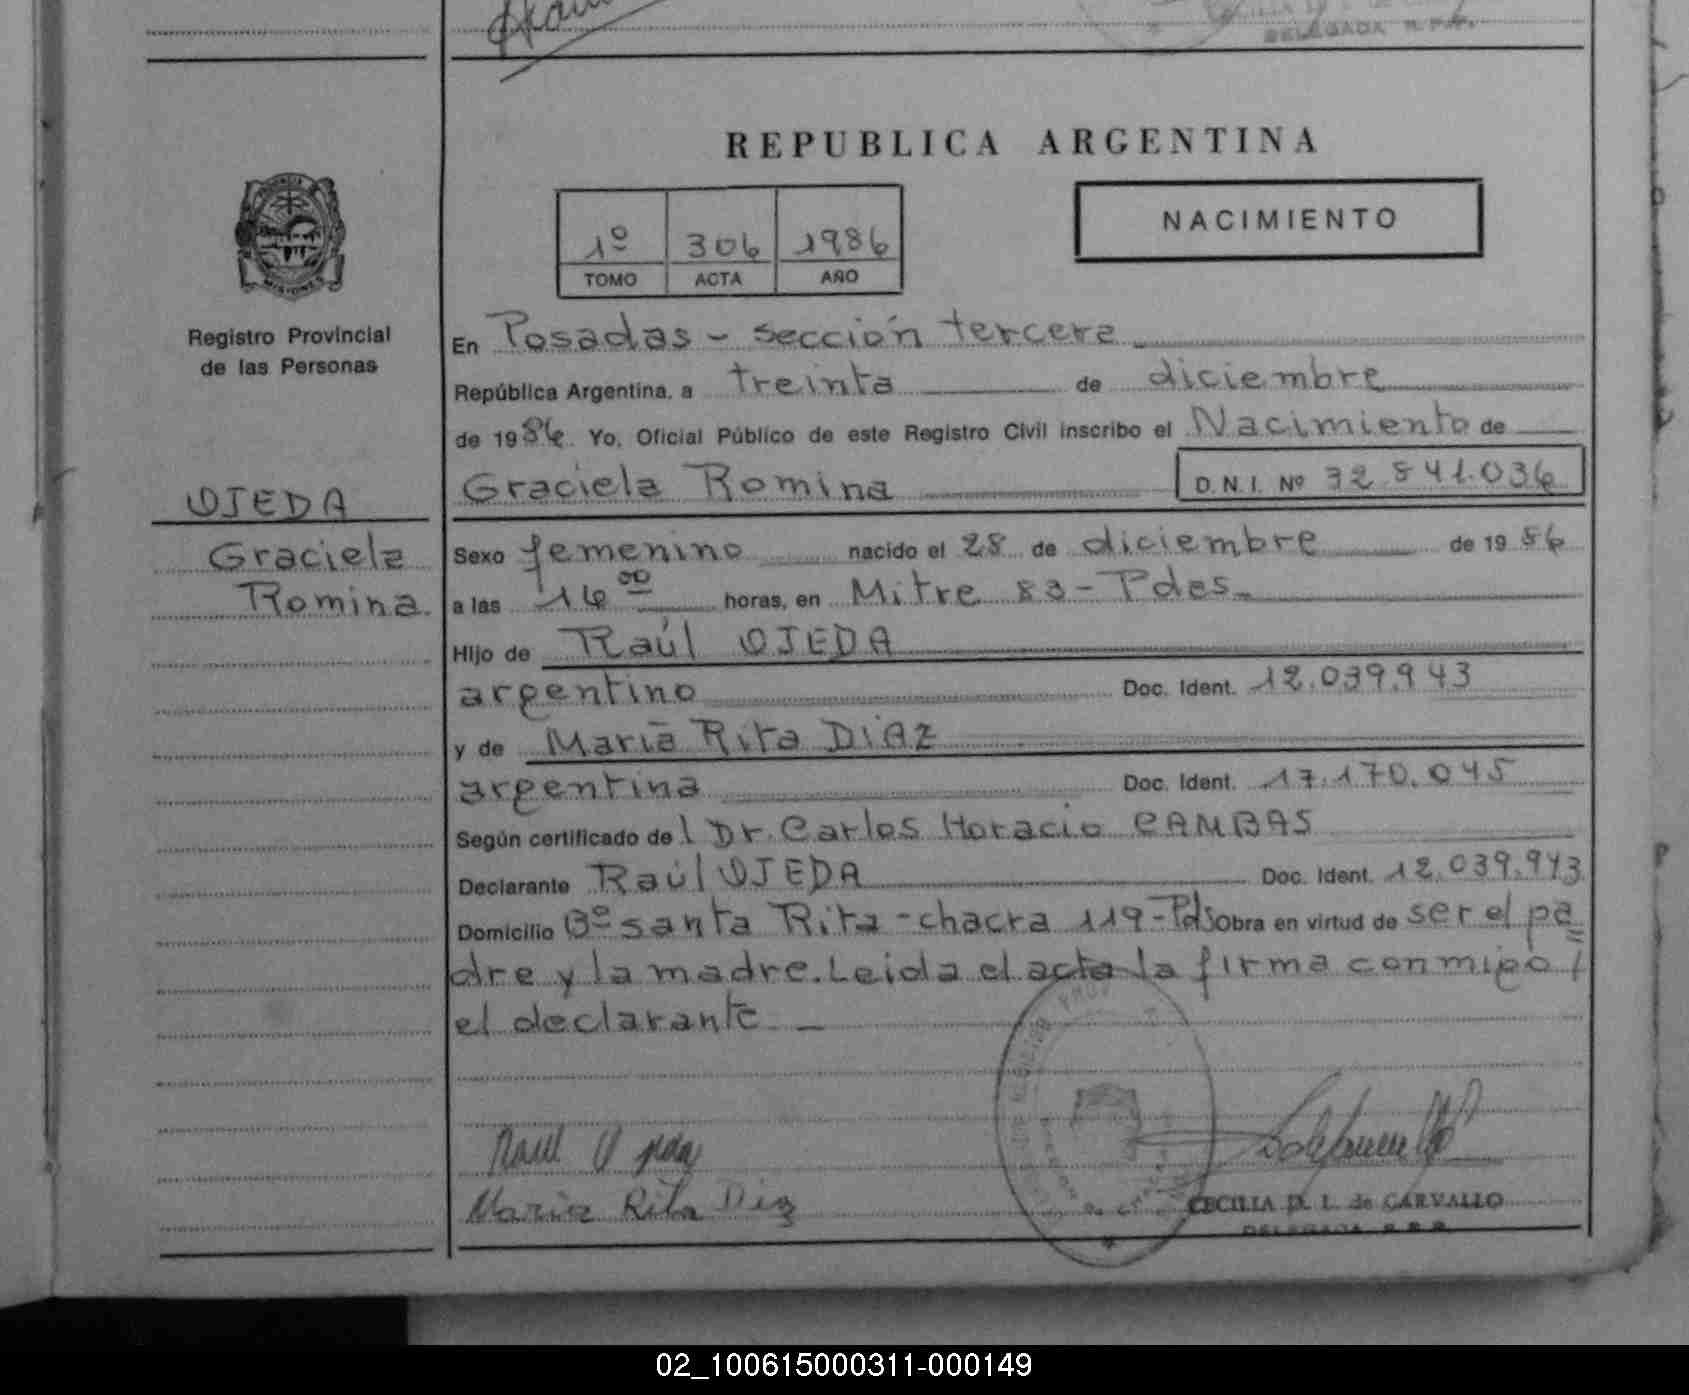 DELEGADA R.P.P.
REPUBLICA ARGENTINA
1º 306 1986
TOMO ACTA AÑO
NACIMIENTO
PROVINCIA DE
MISIONES
Registro Provincial
de las Personas
OJEDA
Graciela
Romina.
En Posadas - sección tercera
República Argentina, a treinta de diciembre
de 1986. Yo, Oficial Público de este Registro Civil inscribo el Nacimiento de
Graciela Romina D.N.I. Nº 32.841.036
Sexo femenino nacido el 28 de diciembre de 1986
a las 16 00 horas, en Mitre 83 - Pdas.
Hijo de Raúl OJEDA
argentino Doc. Ident. 12.039.943
y de María Rita DIAZ
argentina Doc. Ident. 17.170.045
Según certificado del Dr. Carlos Horacio CAMBAS
Declarante Raúl OJEDA Doc. Ident. 12.039.943
Domicilio Bº santa Rita - chacra 119 - Pds Obra en virtud de ser el pa
dre y la madre. Leida el acta la firma conmigo /
el declarante. -
Raul Ojeda
Maria Rita Diaz
CECILIA D. L. de CARVALLO
DELEGADA R.P.P.
02_100615000311-000149